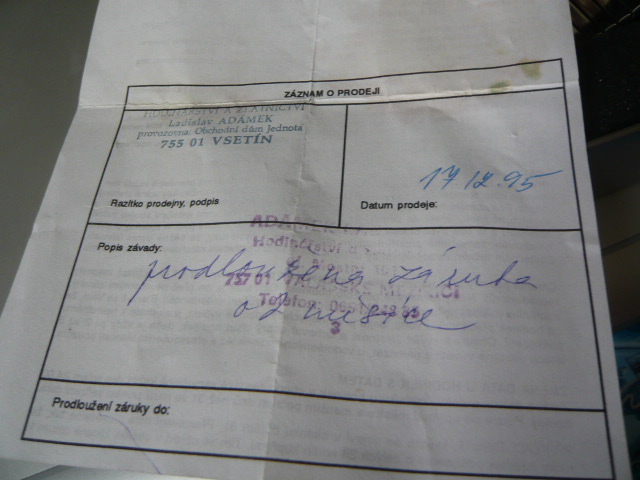 ZÁZNAM O PRODEJI
HODINÁŘSTVÍ A ZLATNICTVÍ
Ladislav ADÁMEK
provozovna: Obchodní dům Jednota
755 01 VSETÍN
17 12. 95
Razítko prodejny, podpis
Datum prodeje:
ADÁMEK
Hodinářství a
Popis závady:
prodloužena záruka
757 01 VALAŠSKÉ MEZIŘÍČÍ
Telefon: 0651
o 2 měsíce
3
Prodloužení záruky do: